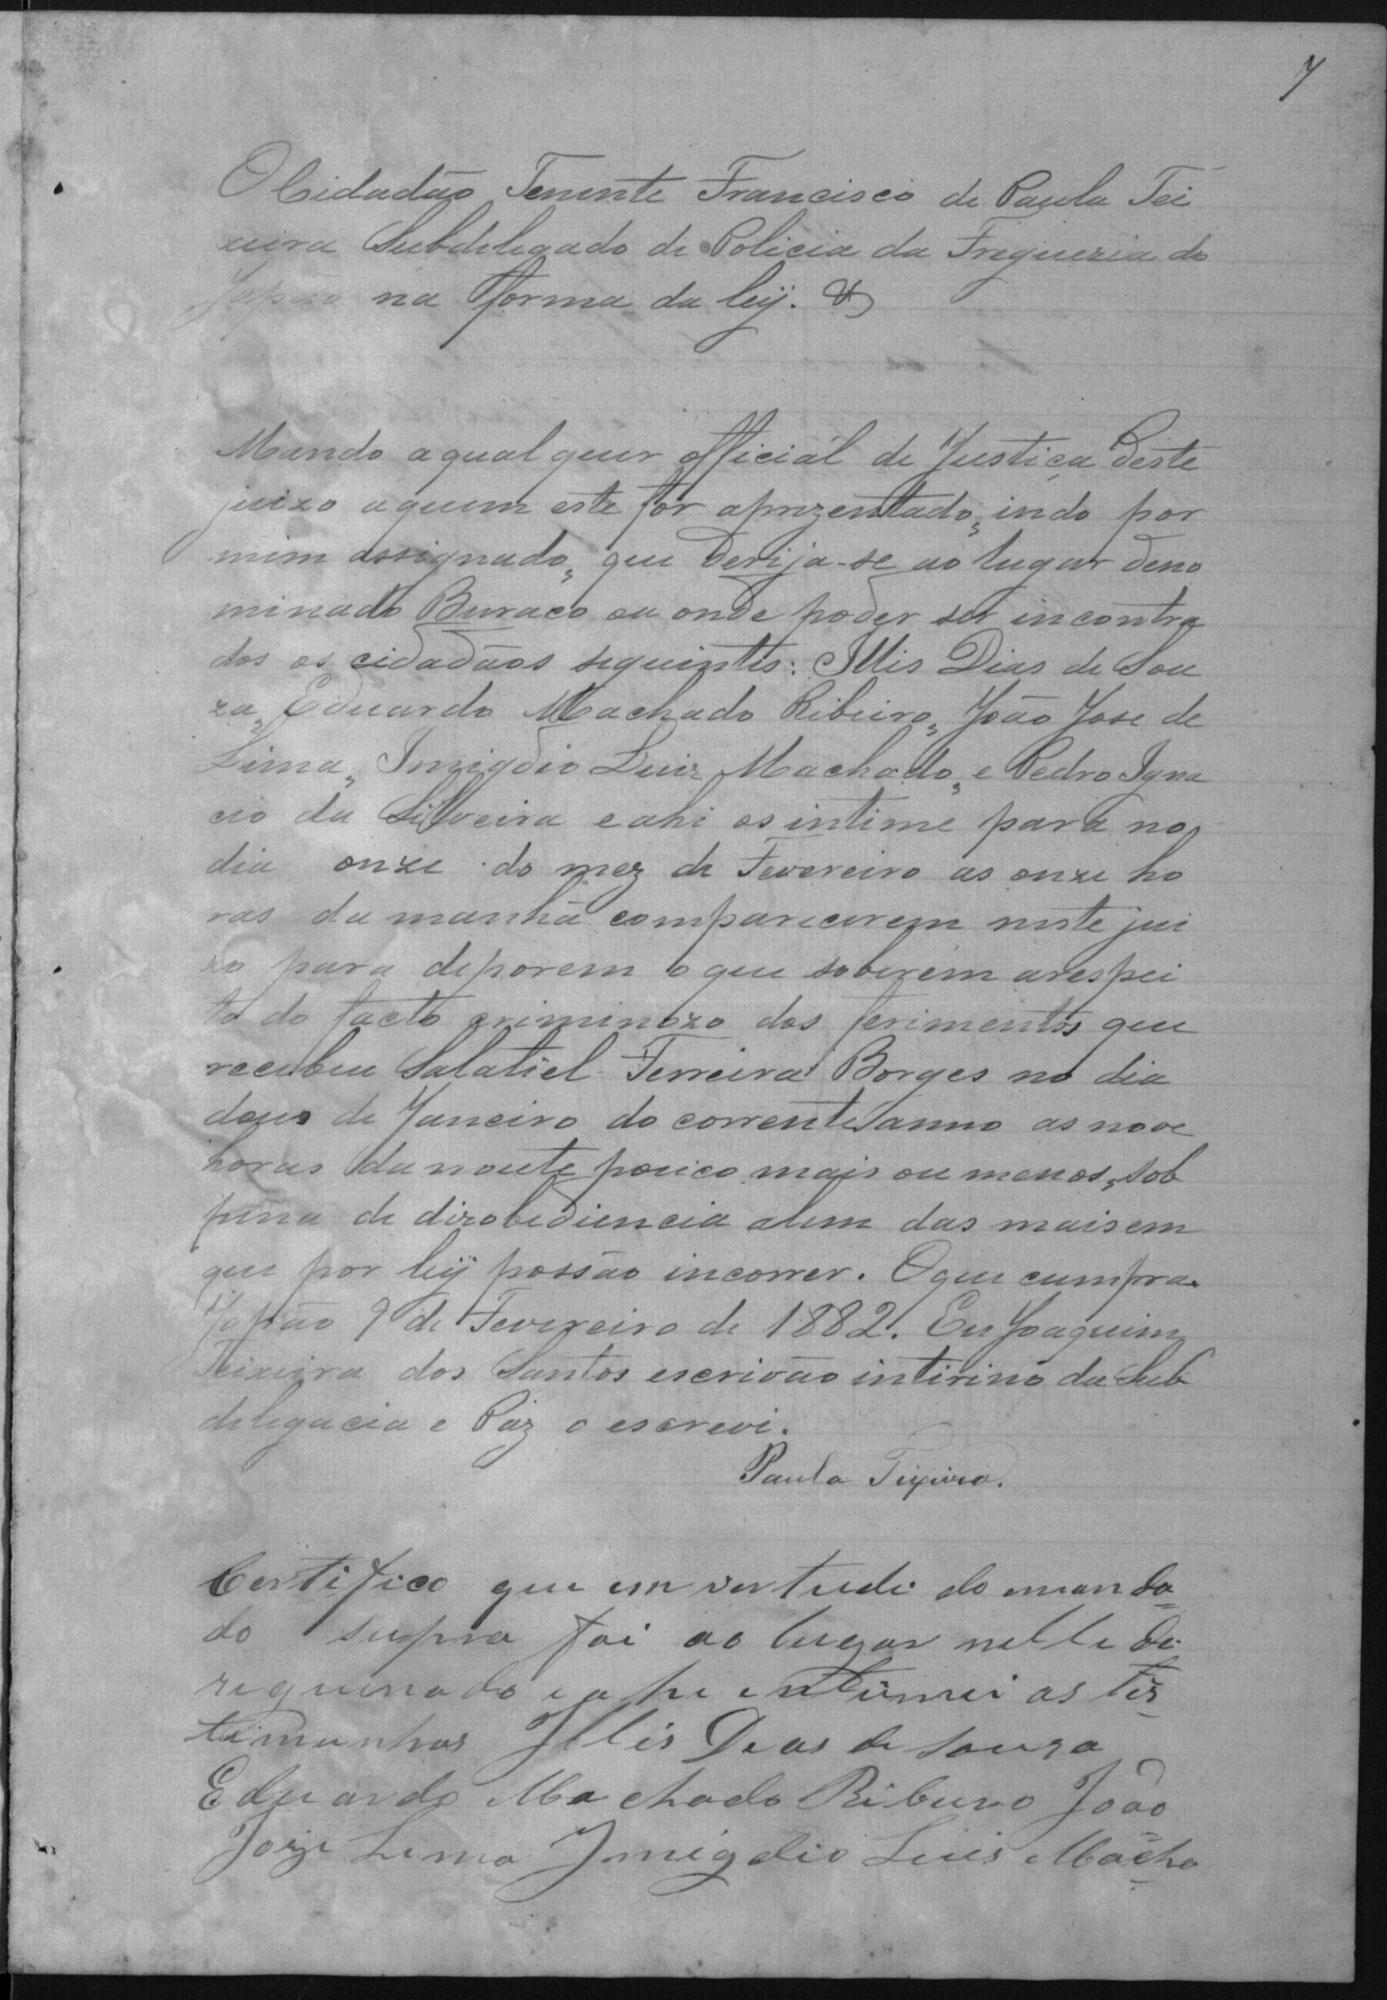 7
O Cidadão Tenente Francisco de Paula Tei
xeira Subdelegado de Policia da Freguezia do
Japão na forma da leÿ. &
Mando a qual quer official de Justiça deste
juizo aquem este for aprezentado, indo por
mim assignado, que derija-se ao lugar deno
minado Buraco ou onde poder ser incontra
dos os cidadãos seguintes: Illis Dias de Sou
za, Eduardo Machado Ribeiro, João Jose de
Lima, Imigdio Luiz Machado, e Pedro Igna
cio da Silveira e ahi os intime para no
dia onze do mez de Fevereiro as onze ho
ras da manhã comparecerem neste jui
zo para deporem o que soberem arespei
to do facto criminozo dos ferimentos que
recebeu Salatiel Ferreira Borges no dia
deus de Janeiro do corrente anno as nove
horas da noute pouco mais ou menos, sob
pena de dizobediencia alem das mais em
que por leÿ possão incorrer. O que cumpra.
Japão 9 de Fevereiro de 1882. Eu Joaquim
Teixeira dos Santos escrivão intirino da Sub
delegacia e Paz o escrevi.
Paula Teixeira.
Certifico que em vertude do manda
do supra foi ao lugar nelle de
ziguinado e ahi entimei as tes
timunhas Illis Deas de Souza
Eduardo Machado Ribeiro João
Joze Lima Imigdio Luis Macha